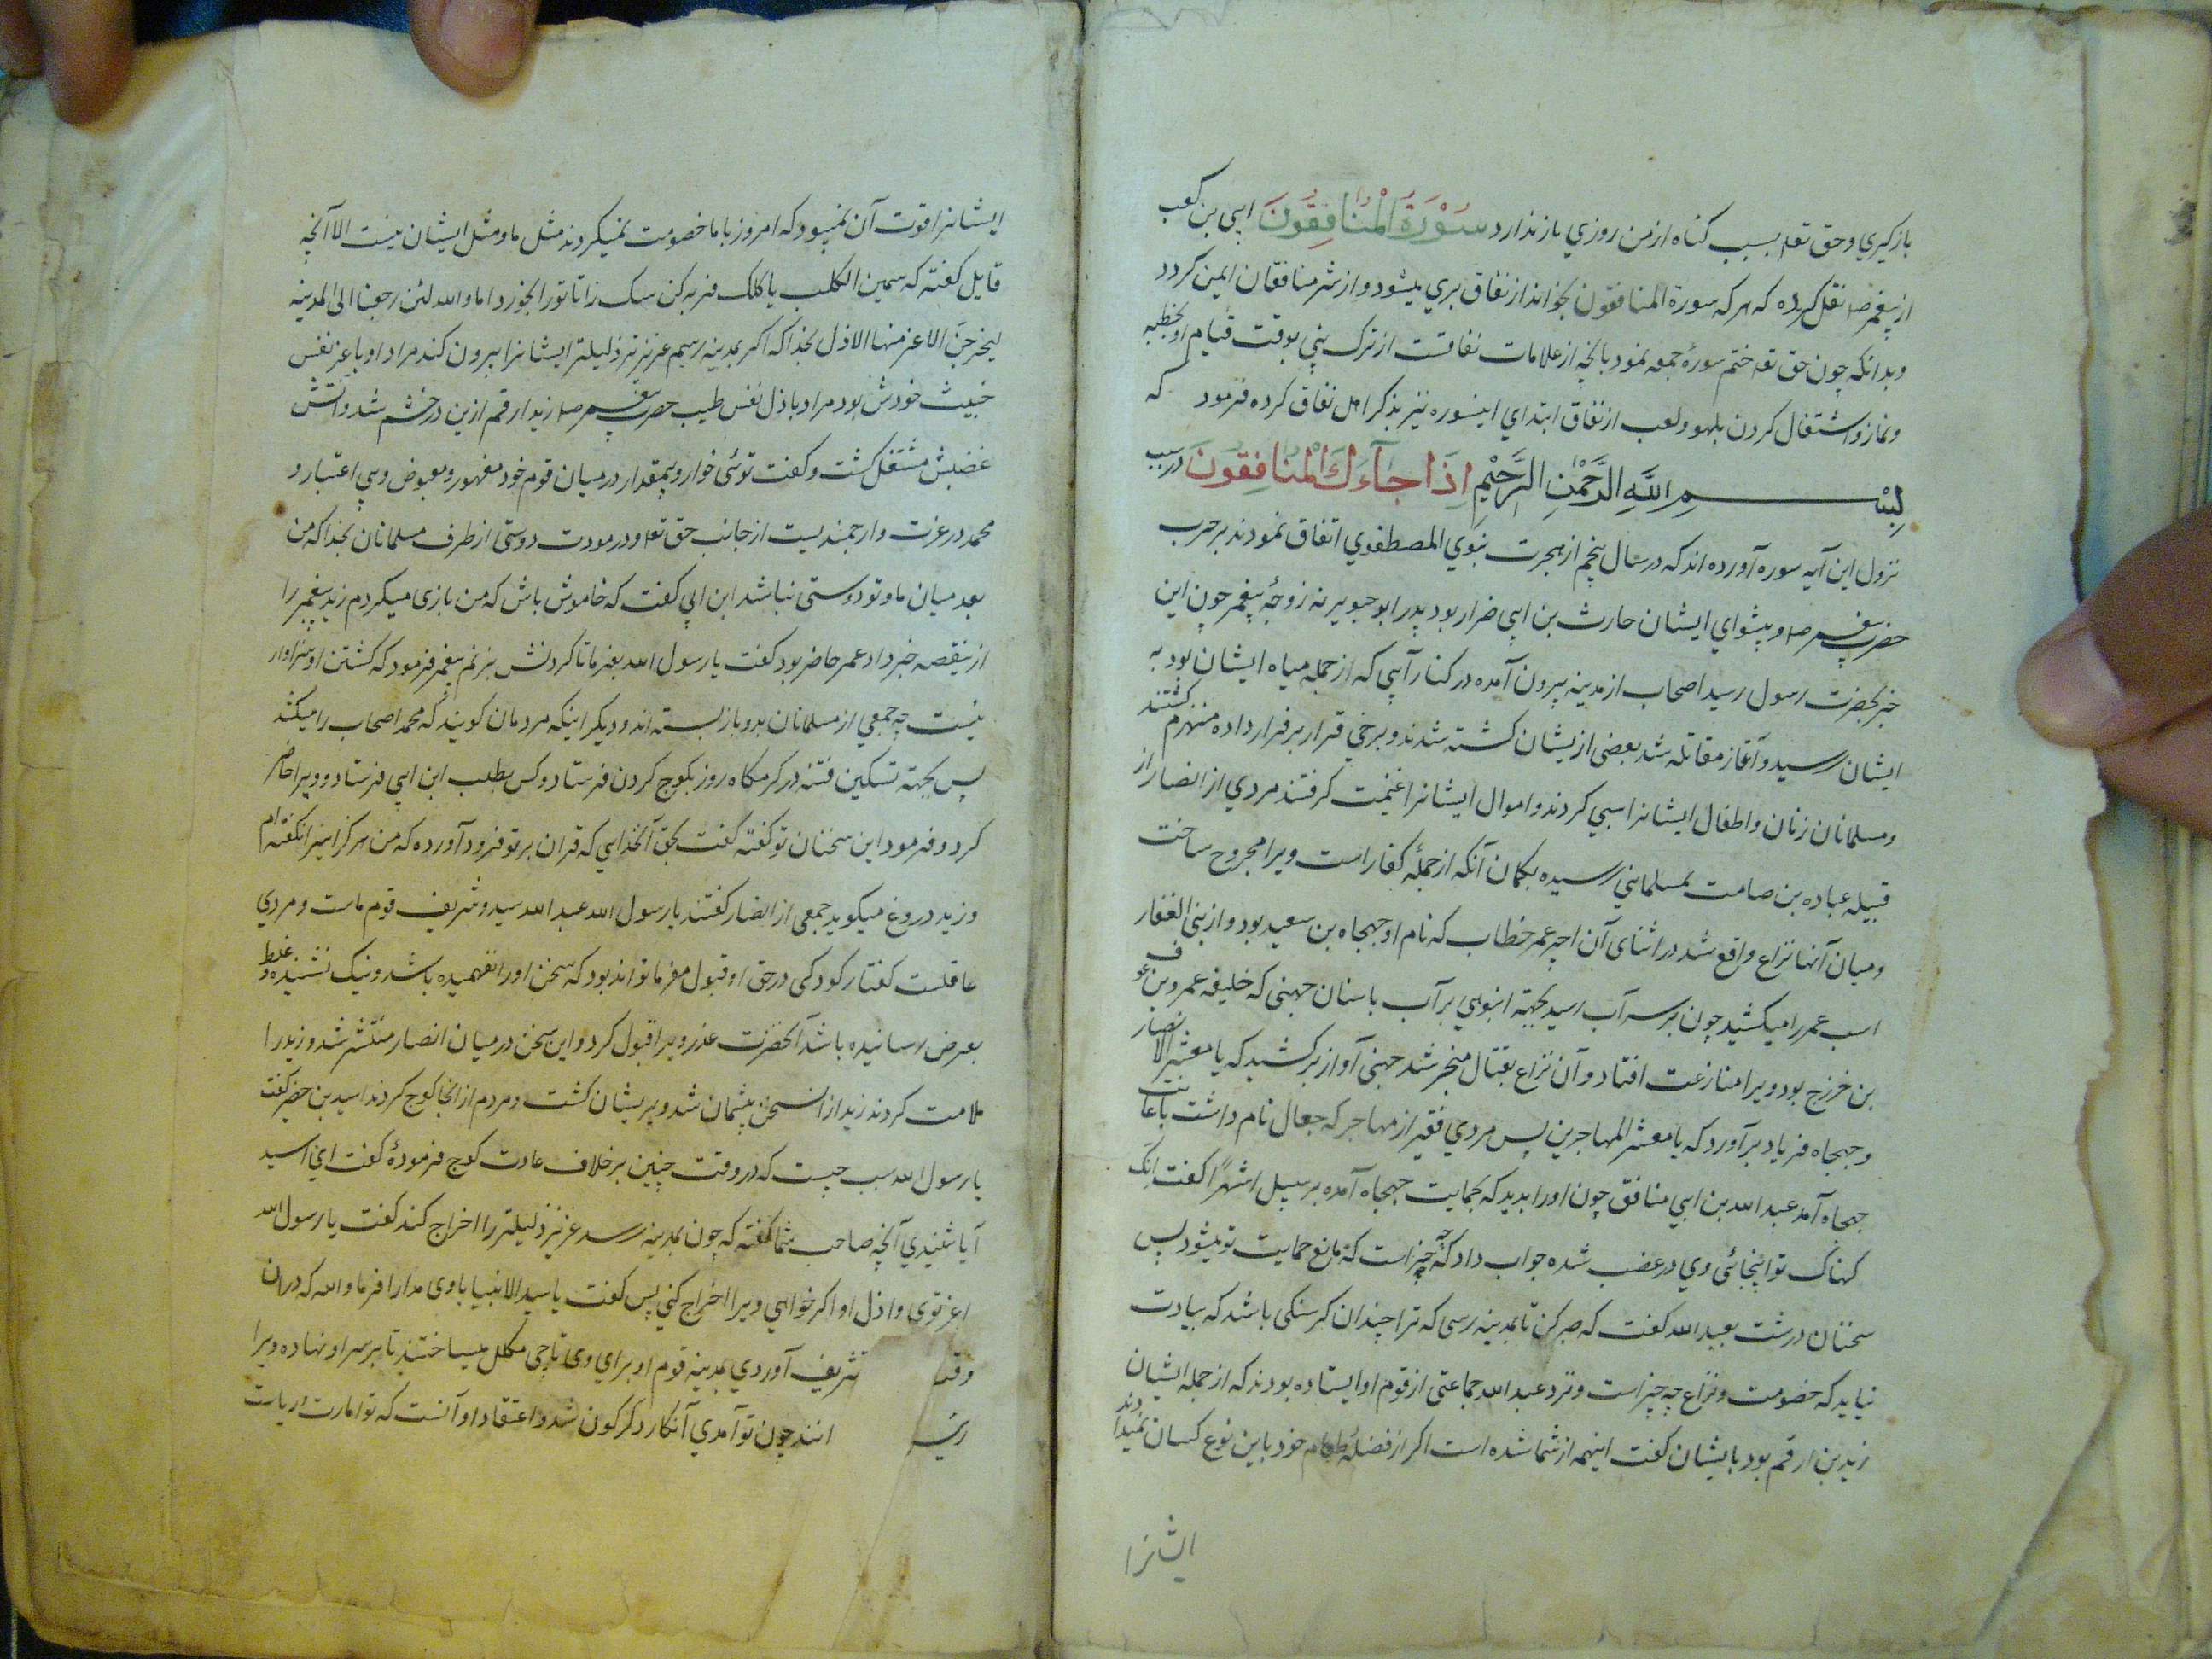 بازگیری و حق تعه بسبب گناه از من روزی باز ندارد سُوْرَةُ الْمُنافِقُونَ ابی بن کعب
از پیغمبر صلعم نقل کرده که هر که سورة المنافقون بخواند از نفاق بری میشود و از شر منافقان ایمن گردد
و بدانکه چون حق تعه ختم سورهٔ جمعه نمود بانچه از علامات نفاقست از ترک نبی بوقت قیام او بخطبه
و نماز و اشتغال کردن بلهو و لعب از نفاق ابتدای اینسوره نیز بذکر اهل نفاق کرده فرمود که
بِسْمِ اللَّهِ الرَّحْمٰنِ الرَّحِیْمِ اِذَا جَآءَكَ الْمُنافِقُونَ در سبب
نزول این آیه سوره آورده اند که در سال پنجم از هجرت نبوی المصطفوی اتفاق نمودند بر حرب
حضرت پیغمبر صلعم و پیشوای ایشان حارث بن ابی ضرار بود پدر ابو جویریه زوجهٔ پیغمبر چون این
خبر بحضرت رسول رسید اصحاب از مدینه بیرون آمده در کنار آبی که از جمله میاه ایشان بود به
ایشان رسید و آغاز مقاتله شد بعضی ازیشان کشته شدند و برخی قرار بر فرار داده منهزم گشتند
و مسلمانان زنان و اطفال ایشانرا سبی کردند و اموال ایشانرا غنیمت گرفتند مردی از انصار از
قبیله عباده بن صامت بمسلمانی رسیده بگمان آنکه از جملهٔ کفار است ویرا مجروح ساخت
و میان آنها نزاع واقع شد در اثنای آن اجیر عمر خطاب که نام او جهجاه بن سعید بود و از بنی الغفار
اسب عمر را میکشید چون بر سر آب رسید بجهته انبوهی بر آب با سنان جهنی که خلیفه عمرو بن عوف
بن خزرج بود ویرا منازعت افتاد و آن نزاع بقتال منجر شد جهنی آواز بر کشید که یا معشر الانصار
و جهجاه فریاد بر آورد که یا معشر المهاجرین پس مردی فقیر از مهاجر که جعال نام داشت باعانت
جهجاه آمد عبد الله بن ابی منافق چون اورا بدید که بحمایت جهجاه آمده بر سبیل اشهرا گفت انک
کهناک تو اینجائی وی در غضب شده جواب داد که چه چیز است که مانع حمایت تو میشود پس
سخنان درشت بعبد الله گفت که صبر کن تا بمدینه رسی که ترا چندان گرسنگی باشد که بیادت
نیاید که خصومت و نزاع چه چیز است و نزد عبد الله جماعتی از قوم او ایستاده بودند که از جمله ایشان
زید بن ارقم بود بایشان گفت اینهمه از شما شده است اگر از فضلهٔ طعام خود باین نوع کسان نمیدادند
ایشانرا
ایشانرا قوت آن نمیبود که امروز با ما خصومت نمیکردند مثل ما و مثل ایشان نیست الا آنچه
قایل گفته که سمین الکلب یاکلک فربه کن سک را تا تورا بخورد اما و الله لئن رجعنا الی المدینه
لیخرجنّ الاعز منها الاذل بخدا که اگر بمدینه رسیم عزیزتر ذلیلتر ایشانرا بیرون کند مراد او با عز نفس
خبیث خودش بود مراد باذل نفس طیب حضرت پیغمبر صلعم زید ارقم ازین در خشم شد و آتش
غضبش مشتعل گشت و گفت توئی خوار و بیمقدار در میان قوم خود مقهور و مبغوض و بی اعتبار و
محمد در عزت و ارجمندیست از جانب حق تعه و در مودت دوستی از طرف مسلمانان بخدا که من
بعد میان ما و تو دوستی نباشد ابن ابی گفت که خاموش باش که من بازی میکردم زید پیغمبر را
ازینقصه خبر داد عمر حاضر بود گفت یا رسول الله بفرما تا گردنش بزنم پیغمبر فرمود که کشتن او سزاوار
نیست چه جمعی از مسلمانان بدو باز بسته اند و دیگر اینکه مردمان گویند که محمد اصحاب را میکشد
پس بجهته تسکین فتنه در گرمگاه روز بکوچ کردن فرستاد و کس بطلب ابن ابی فرستاد و ویرا حاضر
کرد و فرمود این سخنان تو گفته گفت بحق آنخدایی که قران بر تو فرود آورده که من هرگز اینرا نگفته ام
و زید دروغ میگوید جمعی از انصار گفتند یا رسول الله عبد الله سید و شریف قوم ماست و مردی
عاقلست گفتار کودکی در حق او قبول مفرما تواند بود که سخن اورا نفهمیده باشد و نیک نشنیده و غلط
بعرض رسانیده باشد آنحضرت عذر ویرا قبول کرد و این سخن در میان انصار منتشر شد و زید را
ملامت کردند زید از انسخن پشیمان شد و پریشان گشت و مردم از انجا کوچ کردند اسید بن حضیر گفت
یا رسول الله سبب چیست که در وقت چنین بر خلاف عادت کوچ فرمودهٔ گفت ای اسید
آیا شنیدی آنچه صاحب شما گفته که چون بمدینه رسد عزیز ذلیلتر را اخراج کند گفت یا رسول الله
اعز توی و اذل او اگر خواهی ویرا اخراج کنی پس گفت یا سید الانبیا باوی مدارا فرما و الله که دران
وقت تشریف آوردی بمدینه قوم او برای وی تاجی مکلل میساختند تا بر سر او نهاده ویرا
انند چون تو آمدی آنکار دگرگون شد و اعتقاد او آنست که تو امارت و ریاست